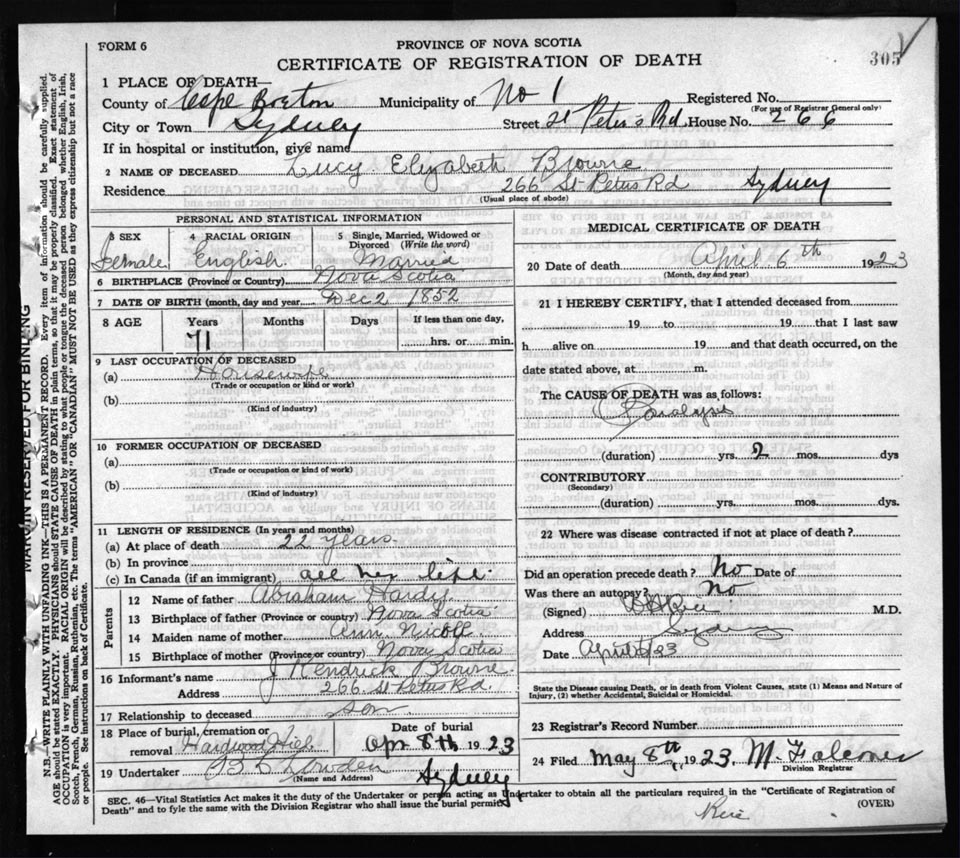 FORM 6
PROVINCE OF NOVA SCOTIA
CERTIFICATE OF REGISTRATION OF DEATH
305
1 PLACE OF DEATH—
County of Cape Breton Municipality of No 1 Registered No.
(For use of Registrar General only)
City or Town Sydney Street St Peter's Rd. House No. 266
If in hospital or institution, give name
2 NAME OF DECEASED Lucy Elizabeth Browne
Residence 266 St Peters Rd Sydney
(Usual place of abode)
PERSONAL AND STATISTICAL INFORMATION
3 SEX Female
4 RACIAL ORIGIN English
5 Single, Married, Widowed or Divorced (Write the word) Married
6 BIRTHPLACE (Province or Country) Nova Scotia
7 DATE OF BIRTH (month, day and year) Dec 2 1852
8 AGE Years Months Days If less than one day,
71 hrs. or min.
9 LAST OCCUPATION OF DECEASED
(a) Housewife
(Trade or occupation or kind or work)
(b)
(Kind of industry)
10 FORMER OCCUPATION OF DECEASED
(a)
(Trade or occupation or kind of work)
(b)
(Kind of industry)
11 LENGTH OF RESIDENCE (In years and months)
(a) At place of death 22 years
(b) In province
(c) In Canada (if an immigrant) all her life.
Parents
12 Name of father Abraham Hardy
13 Birthplace of father (Province or country) Nova Scotia
14 Maiden name of mother Ann Nicoll
15 Birthplace of mother (Province or country) Nova Scotia
16 Informant's name J Kendrick Browne
Address 266 St Peters Rd.
17 Relationship to deceased son
18 Place of burial, cremation or removal Hardwood Hill
Date of burial Apr 8th 1923
19 Undertaker Lowden Sydney
(Name and Address)
MEDICAL CERTIFICATE OF DEATH
20 Date of death April 6th 1923
(Month, day and year)
21 I HEREBY CERTIFY, that I attended deceased from
19 to 19 that I last saw
h alive on 19 and that death occurred, on the
date stated above, at m.
The CAUSE OF DEATH was as follows:
Paralysis
(duration) yrs. 2 mos. dys
CONTRIBUTORY
(Secondary)
(duration) yrs. mos. dys.
22 Where was disease contracted if not at place of death?
Did an operation precede death? No Date of
Was there an autopsy? No
(Signed) M.D.
Address Sydney
Date April 23
State the Disease causing Death, or in death from Violent Causes, state (1) Means and Nature of Injury, (2) whether Accidental, Suicidal or Homicidal.
23 Registrar's Record Number
24 Filed May 8th, 1923, M Falconer
Division Registrar
SEC. 46—Vital Statistics Act makes it the duty of the Undertaker or person acting as Undertaker to obtain all the particulars required in the "Certificate of Registration of
Death" and to fyle the same with the Division Registrar who shall issue the burial permit.
(OVER)
MARGIN RESERVED FOR BINDING
N.B.—WRITE PLAINLY WITH UNFADING INK—THIS IS A PERMANENT RECORD. Every item of information should be carefully supplied.
AGE should be stated EXACTLY. PHYSICIANS should STATE CAUSE OF DEATH in plain terms, so that it may be properly classified. Exact statement of
OCCUPATION is very important. RACIAL ORIGIN will be described by stating to what people or tongue the deceased person belonged whether English, Irish,
Scotch, French, German, Russian, Ruthenian, etc. The terms "AMERICAN" OR "CANADIAN" MUST NOT BE USED as they express citizenship but not a race
or people. See instructions on back of Certificate.